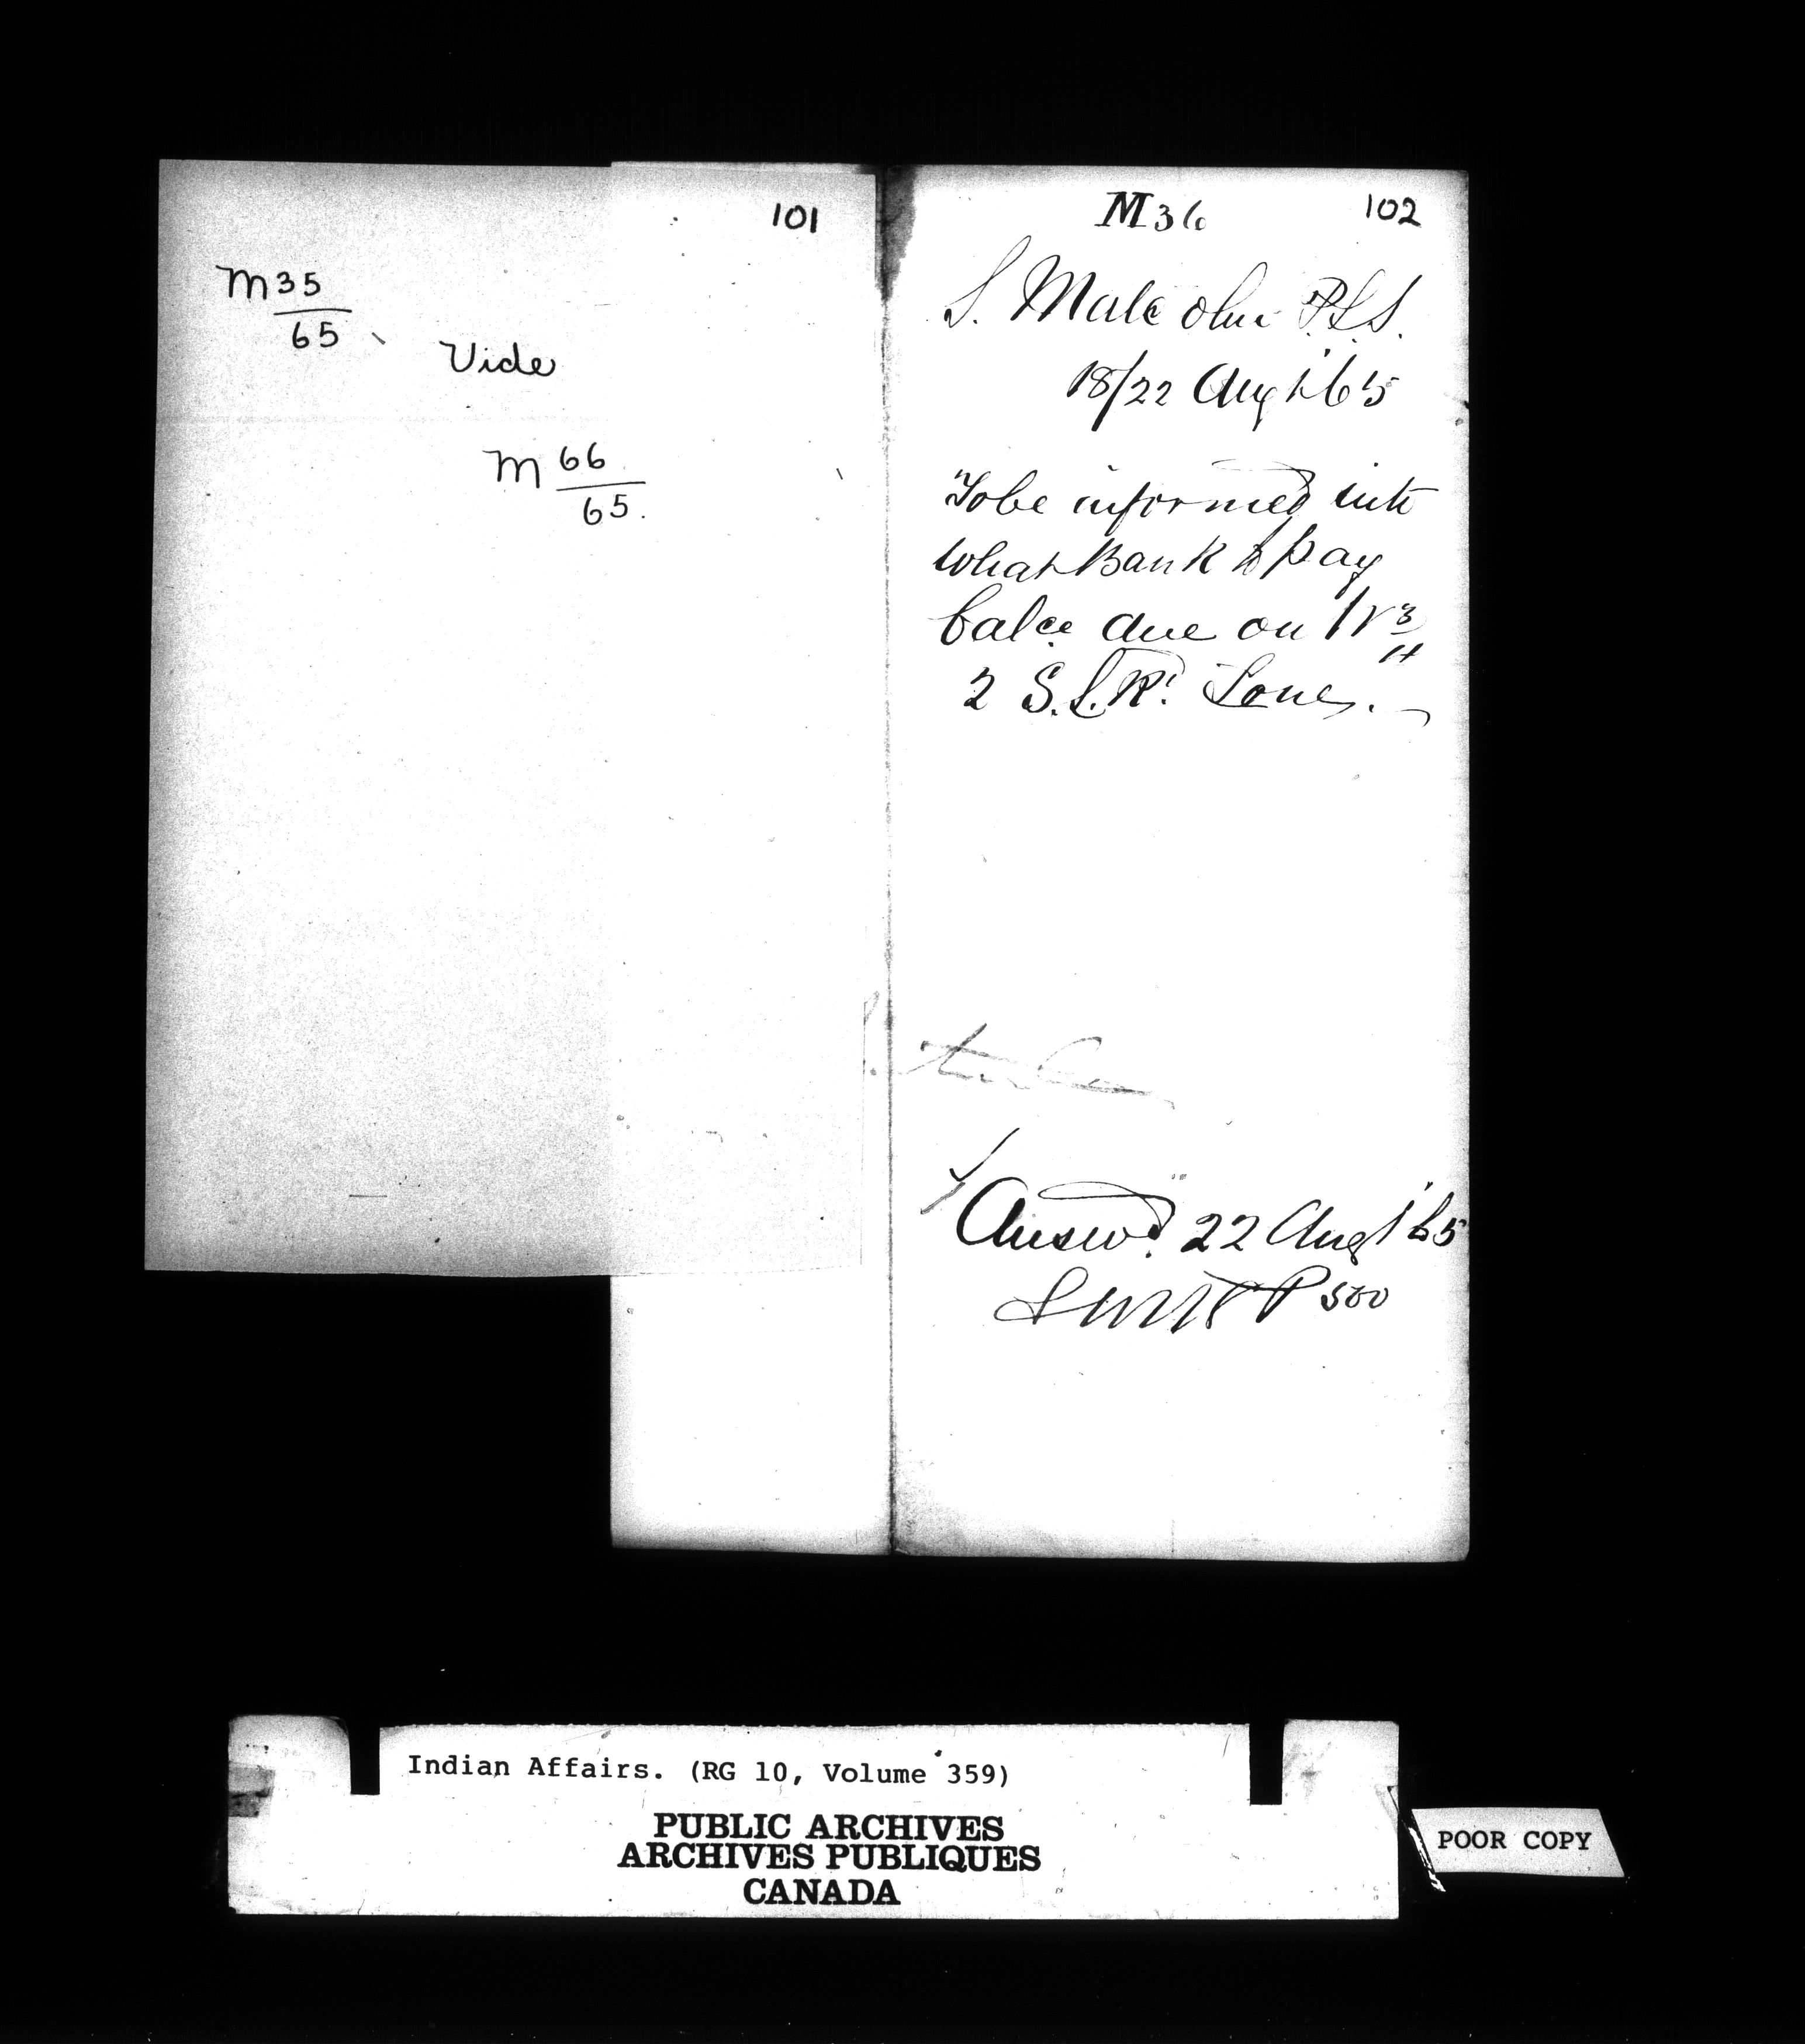 101
M 35
65
Vide
M 66
65.
M36
102
S. Malcolm P.L.S.
18/22 Augt '65
To be informed into
what Bank to pay
balce due on
2 S.L.R.
Answd. 22 Augt '65
P 500
Indian Affairs. (RG 10, Volume 359)
PUBLIC ARCHIVES
ARCHIVES PUBLIQUES
CANADA
POOR COPY